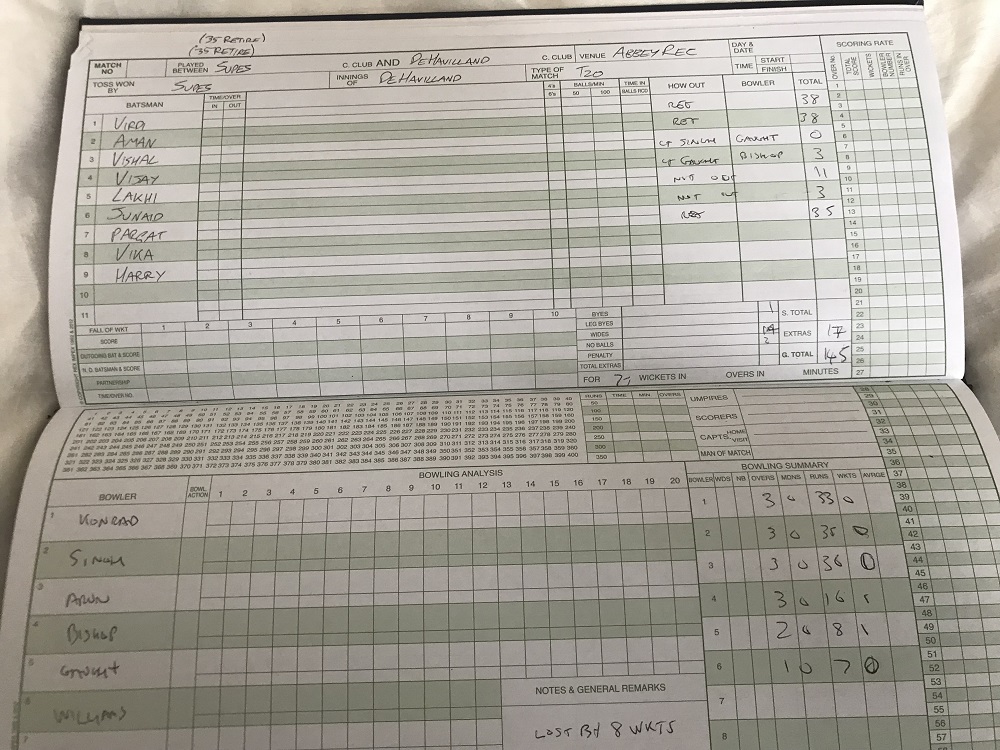 (35 RETIRE)
(35 RETIRE)
MATCH NO PLAYED BETWEEN SUPES C. CLUB AND DEHAVILLAND C. CLUB VENUE ABBEY REC DAY & DATE SCORING RATE
TOSS WON BY SUPES INNINGS OF DEHAVILLAND TYPE OF MATCH T20 TIME START FINISH
OVER No TOTAL SCORE WICKETS BOWLER NUMBER RUNS IN OVER
BATSMAN TIME/OVER IN OUT 4's 6's BALLS/MIN 50 100 TIME IN BALLS RCD HOW OUT BOWLER TOTAL
1 VIRA RET 38
2 AMAN RET 38
3 VISHAL CT SINGH GAUCHT 0
4 VIJAY CT GAUCHT BISHOP 3
5 LAKHI NOT OUT 11
6 JUNAID NOT OUT 3
7 PARGAT RET 35
8 VIKA
9 HARRY
10
11
FALL OF WKT 1 2 3 4 5 6 7 8 9 10 BYES 1 S. TOTAL
SCORE LEG BYES
OUTGOING BAT & SCORE WIDES 14 EXTRAS 17
N. O. BATSMAN & SCORE NO BALLS 2
PARTNERSHIP PENALTY G. TOTAL 145
TIME/OVER NO. TOTAL EXTRAS
FOR 2 WICKETS IN OVERS IN MINUTES
RUNS TIME MIN OVERS UMPIRES
50
100
150 SCORERS
200
250 CAPTS. HOME VISIT
300
350 MAN OF MATCH
BOWLING ANALYSIS BOWLING SUMMARY
BOWLER BOWL ACTION 1 2 3 4 5 6 7 8 9 10 11 12 13 14 15 16 17 18 19 20 BOWLER WDS NB OVERS MDNS RUNS WKTS AVRGE
1 KONRAD 1 3 0 33 0
2 SINGH 2 3 0 35 0
3 ARUN 3 3 0 36 0
4 BISHOP 4 3 0 16 1
5 GAUCHT 5 2 0 8 1
6 WILLIAMS 6 1 0 7 0
7 NOTES & GENERAL REMARKS 7
LOST BY 8 WKTS 8